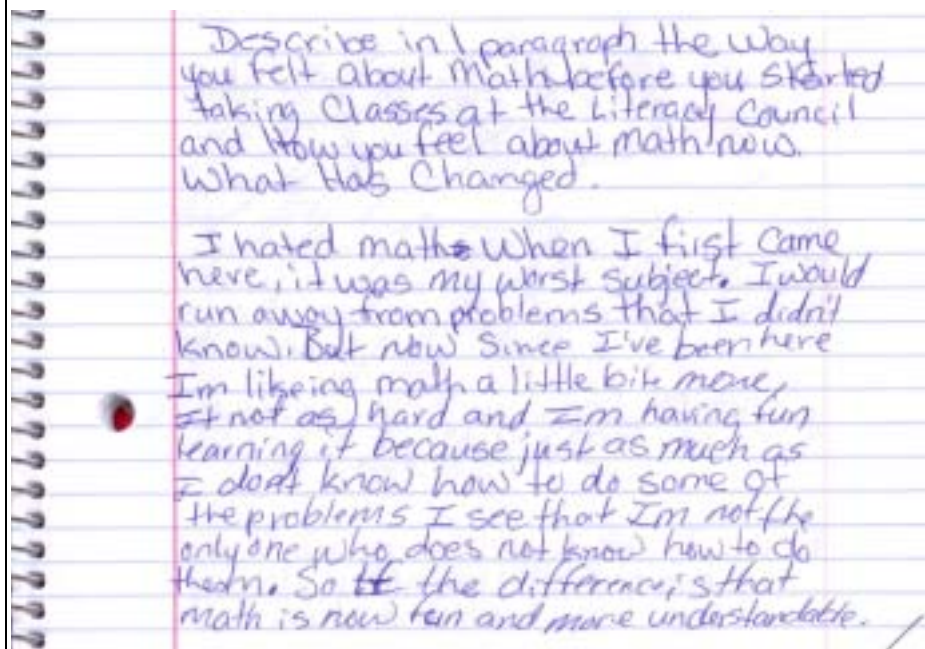 Describe in 1 paragraph the way
you felt about Math before you started
taking Classes at the Literacy Council
and How you feel about Math now.
What Has Changed.
I hated math When I first Came
here, it was my worst subject. I would
run away from problems that I didn't
know. But now Since I've been here
Im likeing math a little bit more,
It not as hard and Im having fun
learning it because just as much as
I dont know how to do some of
the problems I see that Im not the
only one who does not know how to do
them. So the difference is that
math is now fun and more understandable.